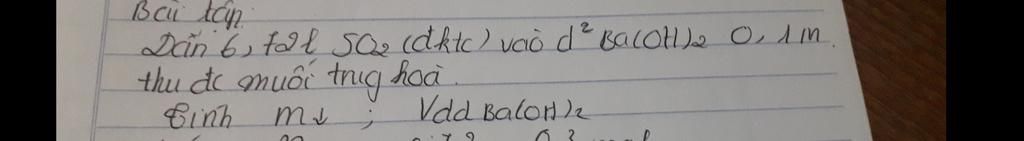 Bài tập:
Dẫn 6,72l SO2 (đktc) vào d² Ba(OH)2 0,1M
thu đc muối trug hoà.
Tính m↓ ; Vdd Ba(OH)2